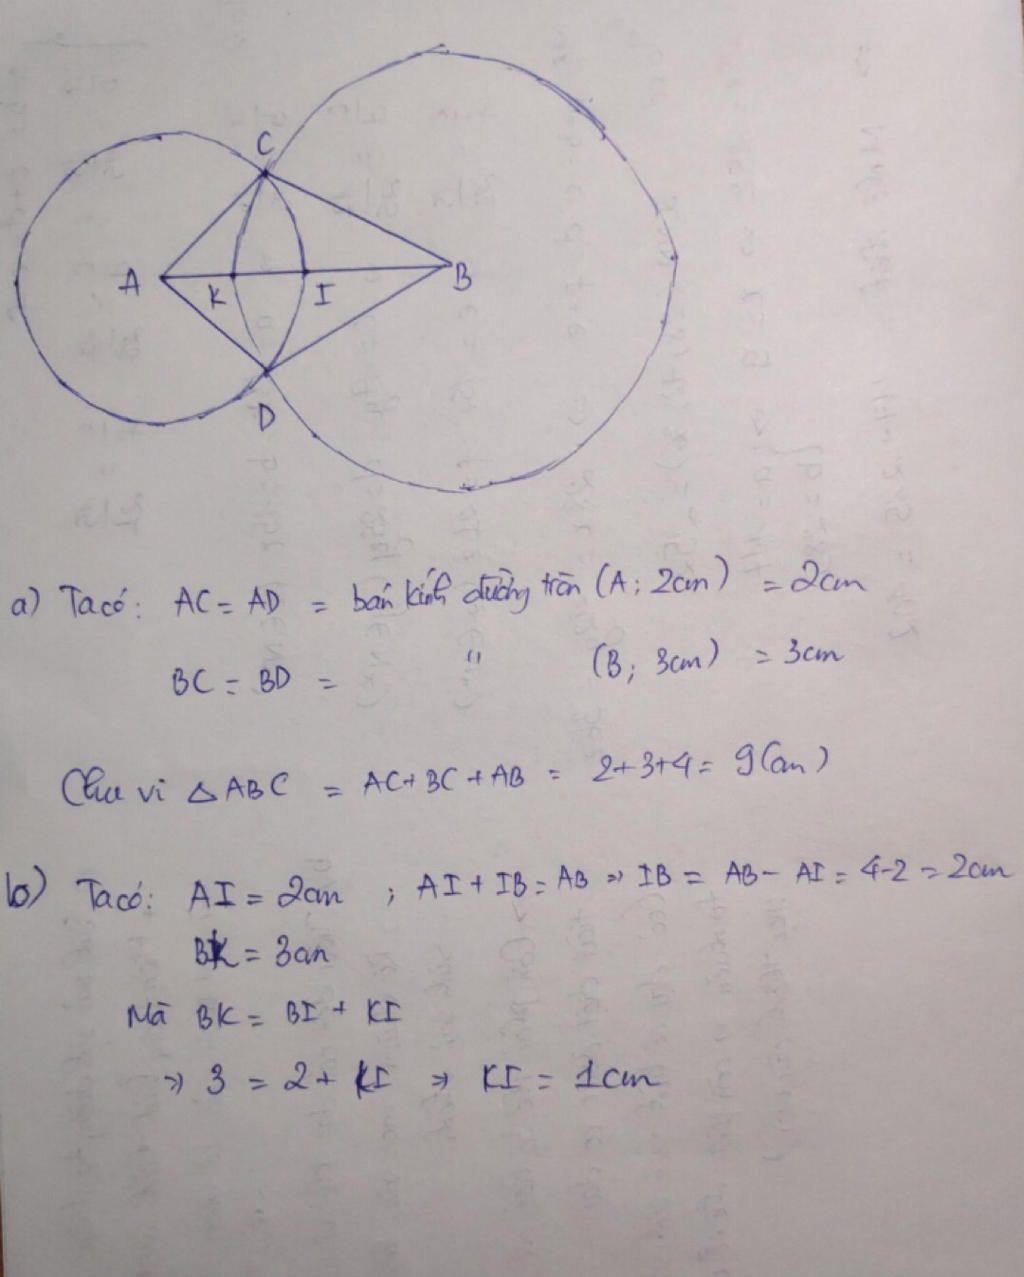 C
A K I B
D
a) Ta có: AC = AD = bán kính đường tròn (A; 2cm) = 2cm
BC = BD = " (B; 3cm) = 3cm
Chu vi △ABC = AC + BC + AB = 2+3+4 = 9(cm)
b) Ta có: AI = 2cm ; AI + IB = AB => IB = AB - AI = 4-2 = 2cm
BK = 3cm
Mà BK = BI + KI
=> 3 = 2 + KI => KI = 1cm